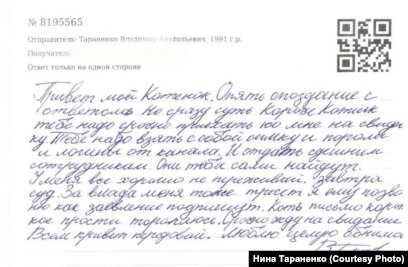 № 8195565
Отправитель: Тараненко Владимир Анатольевич, 1991 г.р.
Получатель:
Ответ только на одной стороне
Привет мой Котенок. Опять опоздание с
ответом. Но сразу суть Короче Котик
тебе надо срочно приехать ко мне на свида
ку. Тебе надо взять с собой симку и пароли
и логины от канала. И отдать здешним
сотрудникам. Они тебя сами найдут.
У меня все хорошо не переживай. завтра
суд. За Влада меня тоже трясет я ему позво
ню как заявление подпишут. Коть письмо корот
кое прости тороплюсь. Срочно жду на свидании
Всем привет передавай. Люблю целую обнимаю
Нина Тараненко (Courtesy Photo)